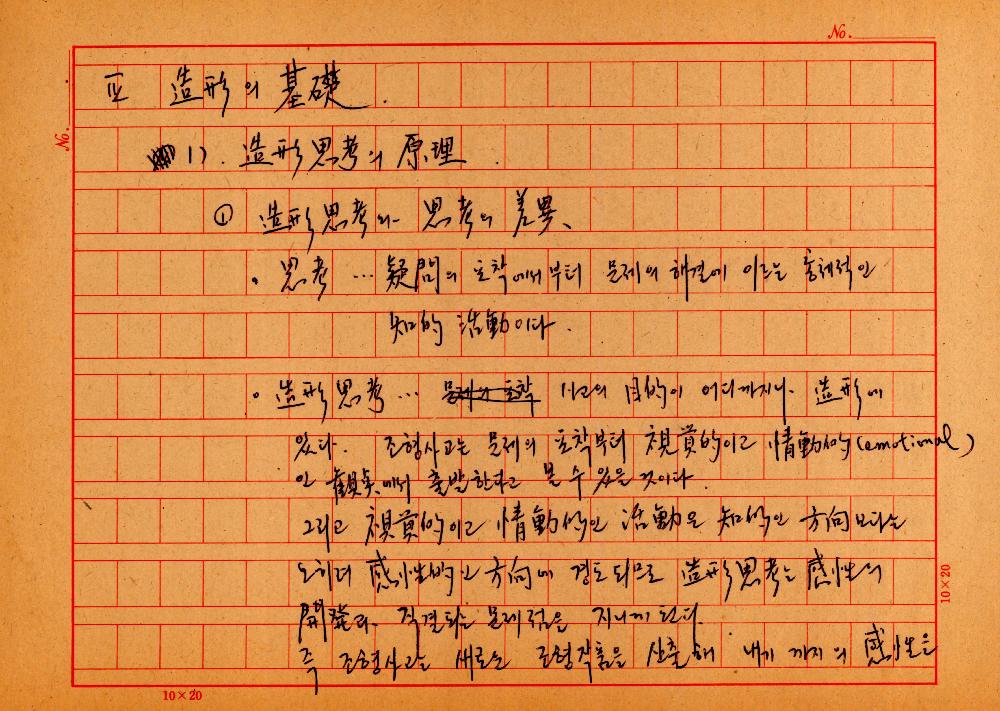 No.
No.
Ⅱ 造形의 基礎.
1). 造形思考의 原理.
① 造形思考와 思考의 差異、
• 思考 … 疑問의 도착에서부터 문제의 해결에 이르는 총체적인
知的 活動이다.
• 造形思考… 사고의 目的이 어디까지나 造形에
있다. 조형사고는 문제의 도착부터 視覺的이고 情動的(emotional)
인 觀点에서 출발한다고 볼 수 있을 것이다.
그리고 視覺的이고 情動的인 活動은 知的인 方向보다는
도히려 感性的인 方向에 경도되므로 造形思考는 感性의
開発과 직결되는 문제점을 지니게 된다.
즉 조형사고는 새로운 조형작품을 산출해 내기 까지의 感性을
10×20
10×20